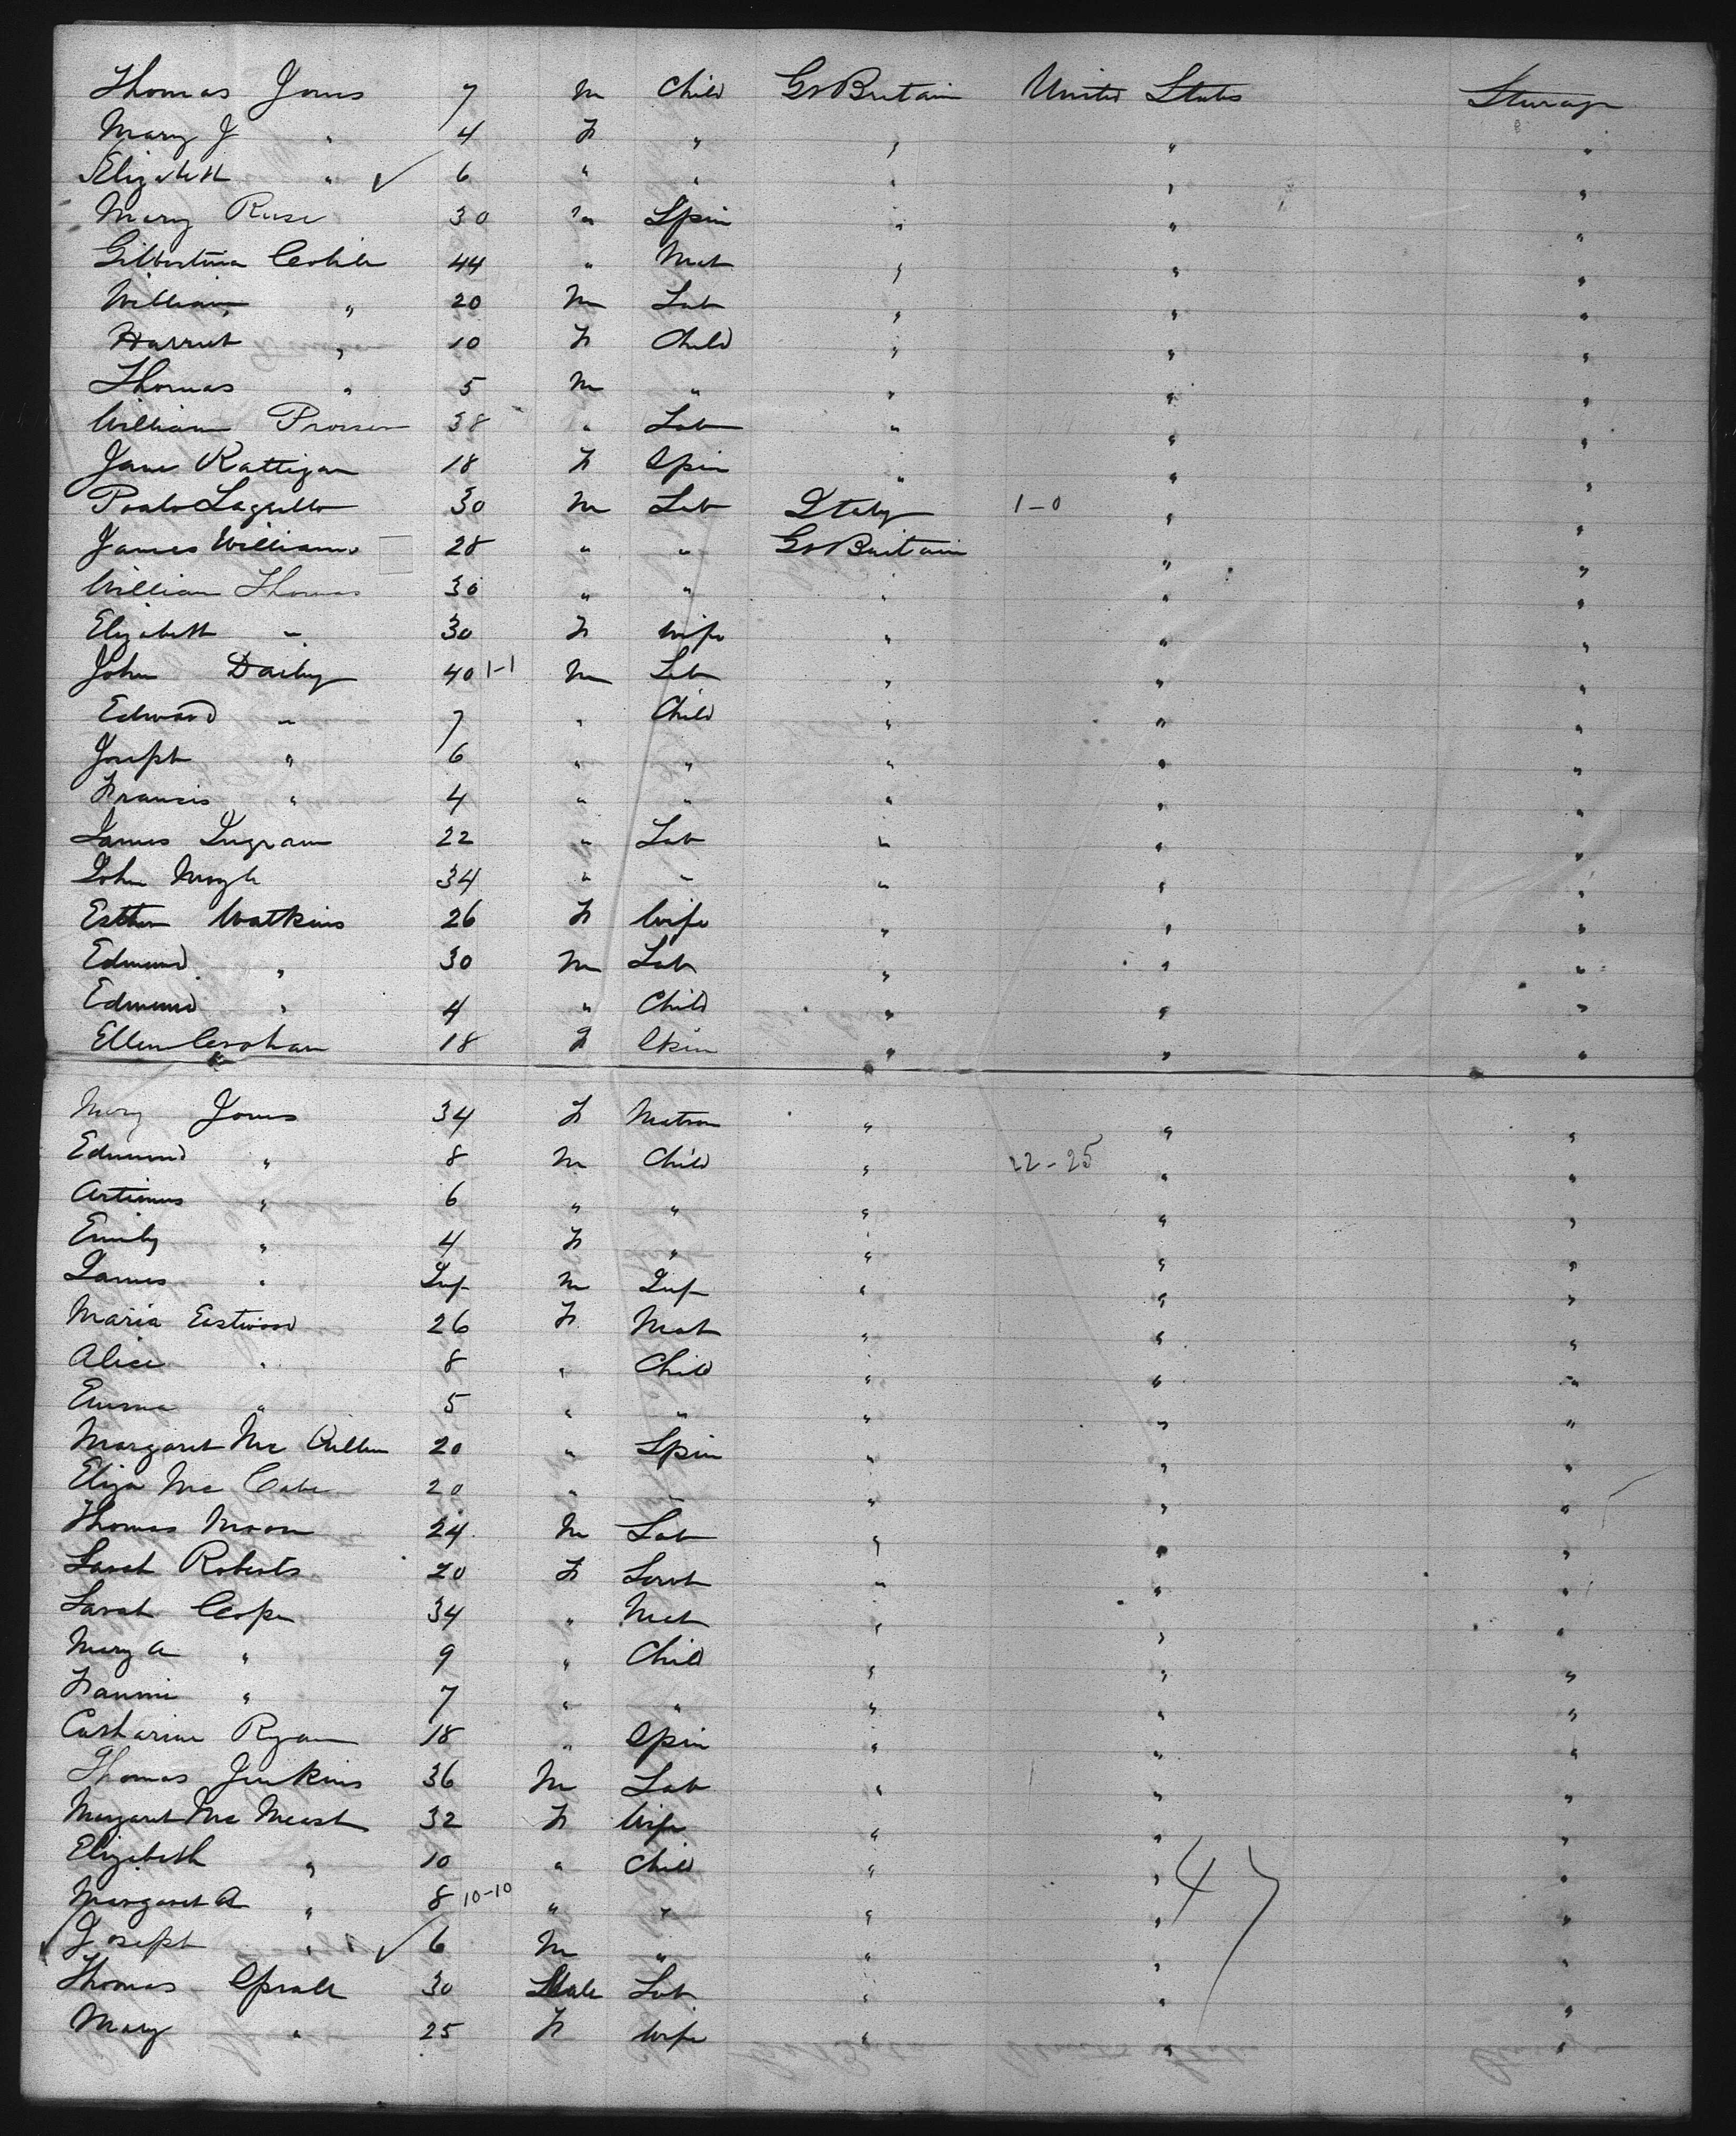 Thomas Jones 7 M Child Gr Britain United States Steerage
Mary J " 4 F " " " "
Elizabeth " 6 " " " " "
Mary Reese 30 " Spin " " "
Gilbertina 44 " Mat " " "
William " 20 M Lab " " "
Harriet " 10 F Child " " "
Thomas " 5 M " " " "
William Prosser 38 " Lab " " "
Jane Rattigan 18 F Spin " " "
30 M Lab Italy 1-0 " "
James Williams 28 " " Gr Britain " "
William Thomas 30 " " " " "
Elizabeth " 30 F Wife " " "
John Dailey 40 1-1 M Lab " " "
Edward " 7 " Child " " "
Joseph " 6 " " " " "
Francis " 4 " " " " "
James Ingram 22 " Lab " " "
John 34 " " " " "
Esther Watkins 26 F Wife " " "
Edmund " 30 M Lab " " "
Edmund " 4 " Child " " "
Ellen 18 F Spin " " "
Mary Jones 34 F Matron " " "
Edmund " 8 M Child " 22-25 " "
Artimus " 6 " " " " "
Emily " 4 F " " " "
James " Inf M Inf " " "
Maria Eastwood 26 F Mat " " "
Alice " 8 " Child " " "
Emma " 5 " " " " "
Margaret Mc Cullen 20 " Spin " " "
Eliza Mc Cabe 20 " " " " "
Thomas Moon 24 M Lab " " "
Sarah Roberts 20 F Servt " " "
Sarah Cope 34 " Mat " " "
Mary A " 9 " Child " " "
Fannie " 7 " " " " "
Catharine Ryan 18 " Spin " " "
Thomas Jenkins 36 M Lab " " "
Margaret Mc 32 F Wife " " "
Elizabeth " 10 " Child " " "
Margaret A " 8 10-10 " " " " "
Joseph " 6 M " " " "
Thomas 30 Male Lab " " "
Mary " 25 F Wife " " "
47